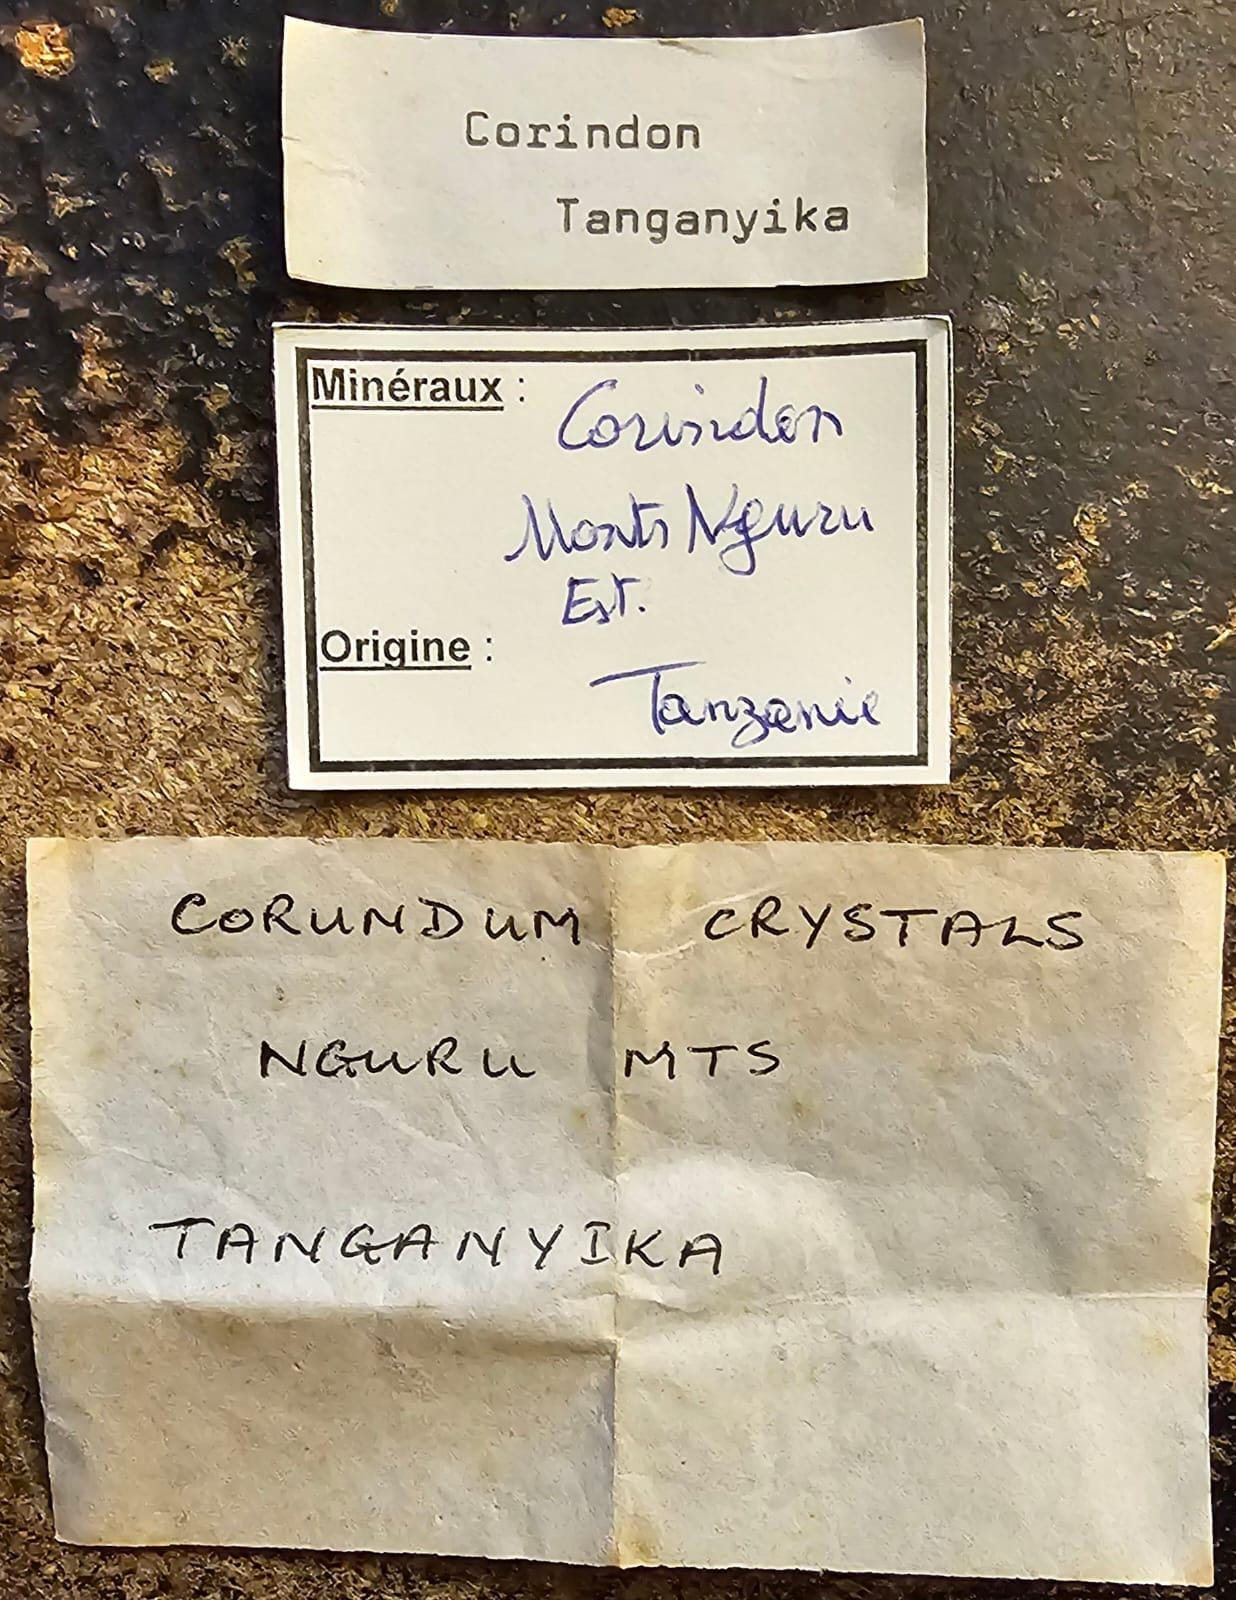 Corindon
Tanganyika
Minéraux :
Corindon
Monts Nguru
Est.
Origine :
Tanzanie
CORUNDUM CRYSTALS
NGURU MTS
TANGANYIKA